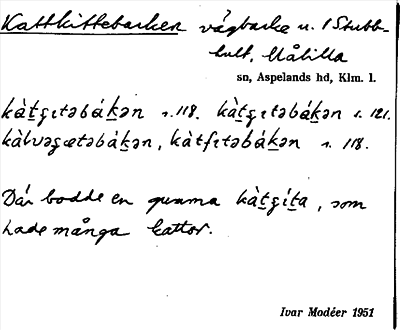 Kattkittebacken vägbacke n. I Stubb-
hult, Målilla
sn, Aspelands hd, Klm. l.
kàt̠ʂıtəbák̠ən s. 118. kàt̠ʂıtəbák̠ən s. 121.
kàlvəgætəbák̠ən, kàtfıtəbák̠ən s. 118.
Där bodde en qumma kàt̠ʂít̠a, som
hade många kattor.
Ivar Modéer 1951